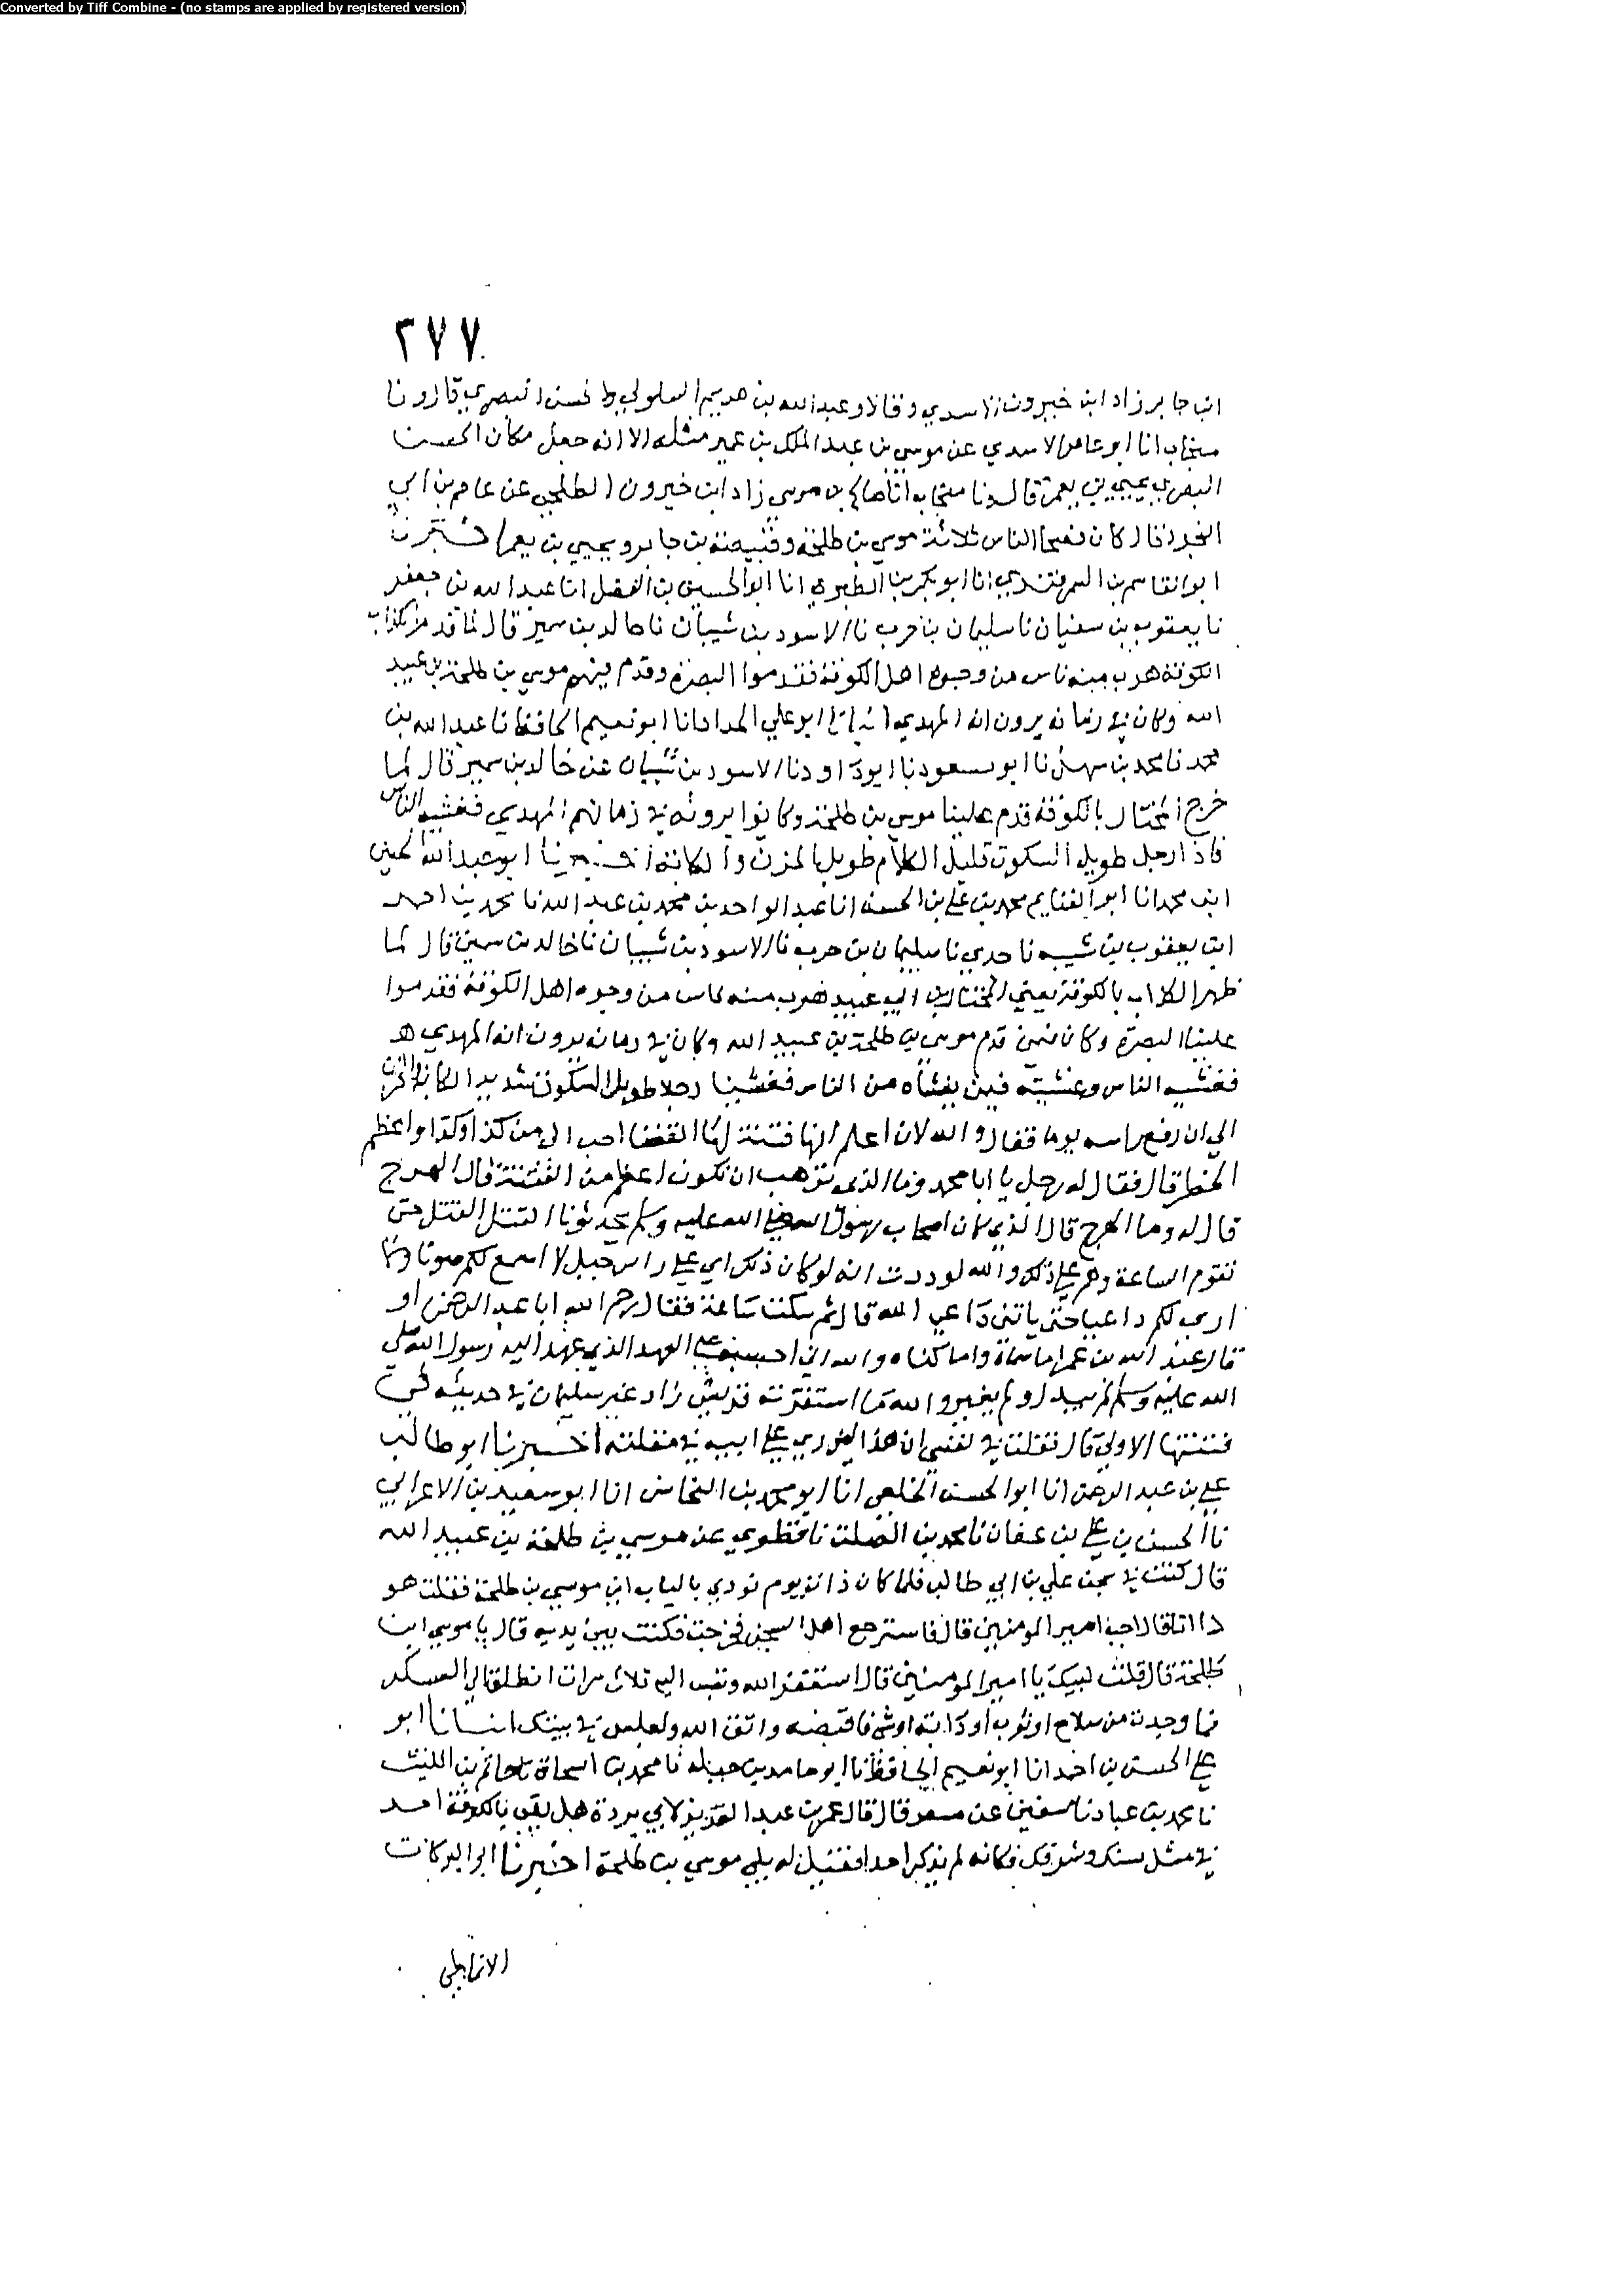 Converted by Tiff Combine - (no stamps are applied by registered version)
٢٧٧
ابن جابر زاد ابن خيرون الاسدي وقالا وعبد الله بن هريم السلولي والحسن البصري قال ونا
منجاب انا ابو عامر الاسدي عن موسى بن عبد الملك بن عمير مثله الا انه جعل مكان الحسن
البصري يحيى بن يعمر قال ونا منجاب انا صالح بن موسى زاد ابن خيرون الطلحي عن عاصم بن ابي
النجود قال كان فصحا الناس ثلاثة موسى بن طلحة وقبيصة بن جابر ويحيى بن يعمر اخبرنا
ابو القاسم بن السمرقندي انا ابو بكر بن الطبري انا ابو الحسين بن الفضل انا عبد الله بن جعفر
نا يعقوب بن سفيان نا سليمان بن حرب نا الاسود بن شيبان نا خالد بن سمير قال لما قدم الكذاب
الكوفة هرب منه ناس من وجوه اهل الكوفة فقدموا البصرة وقدم فيهم موسى بن طلحة بن عبيد
الله وكان في زمانه يرون انه المهدي ابو علي الحداد انا ابو نعيم الحافظ نا عبد الله بن
محمد نا محمد بن سهل نا ابو مسعود نا ابو داود نا الاسود بن شيبان عن خالد بن سمير قال لما
خرج المختار بالكوفة قدم علينا موسى بن طلحة وكانوا يرونه في زمانهم المهدي فغشيه الناس
فاذا رجل طويل السكوت قليل الكلام طويل الحزن والكابة اخبرنا ابو عبد الله الحسين
ابن محمد انا ابو الغنايم محمد بن علي بن الحسن انا عبد الواحد بن محمد بن عبد الله نا محمد بن احمد
ابن يعقوب بن شيبه نا جدي نا سليمان بن حرب نا الاسود بن شيبان نا خالد بن سمير قال لما
ظهر الكذاب بالكوفة يعني المختار بن ابي عبيد هرب منه ناس من وجوه اهل الكوفة فقدموا
علينا البصرة وكان فيمن قدم موسى بن طلحة بن عبيد الله وكان في زمانه يرون انه المهدي هو
فغشيه الناس وغشيته فيمن يغشاه من الناس فغشينا رجلا طويل السكوت شديد الكابة والحزن
الى ان رفع راسه يوما فقال والله لان اعلم انها فتنة لها انقضا احب الي من كذا وكذا واعظم
الخطر قال فقال له رجل يا ابا محمد وما الذي ترهب ان تكون اعظم من الفتنة قال الهرج
قال له وما الهرج قال الذي كان اصحاب رسول الله صلى الله عليه وسلم يحدثونا القتل القتل حتى
تقوم الساعة وهم على ذلك والله لوددت انه لو كان ذلك اني على راس جبل لا اسمع لكم صوتا ولا
ارى لكم داعيا حتى ياتيني داعي الله قال ثم سكت ساعة فقال رحم الله ابا عبد الرحمن او
قال عبد الله بن عمر اما سماه واما كناه والله اني احسبه على العهد الذي عهد اليه رسول الله صلى
الله عليه وسلم لم يبدل ولم يغير والله ما استفزته قريش زاد غير سليمان في حديثه في
فتنتها الاولى قال فقلت في نفسي ان هذا ليزري على ابيه في مقتله اخبرنا ابو طالب
علي بن عبد الرحمن انا ابو الحسن الخلعي انا ابو محمد بن النحاس انا ابو سعيد بن الاعرابي
نا الحسن بن علي بن عفان نا محمد بن الصلت نا عن موسى بن طلحة بن عبيد الله
قال كنت في سجن علي بن ابي طالب فلما كان ذات يوم نودي بالباب اين موسى بن طلحة فقلت هو
ذا انا قال اجب امير المومنين قال فاسترجع اهل السجن فخرجت فكنت بين يديه قال يا موسى ابن
طلحة قال قلت لبيك يا امير المومنين قال استغفر الله وتب اليه ثلاث مرات انطلق الى العسكر
فما وجدت من سلاح او ثوب او دابة او شي فاقبضه واتق الله واجلس في بيتك انبانا ابو
علي الحسن بن احمد انا ابو نعيم الحافظ نا ابو حامد بن جبلة نا محمد بن اسحاق نا حاتم بن الليث
نا محمد بن عباد نا سفين عن مسعر قال قال عمر بن عبد العزيز لابي بردة هل بقي بالكوفة احد
في مثل سنك وشرفك فكانه لم يذكر احدا فقيل له بلى موسى بن طلحة اخبرنا ابو البركات
الانماطي